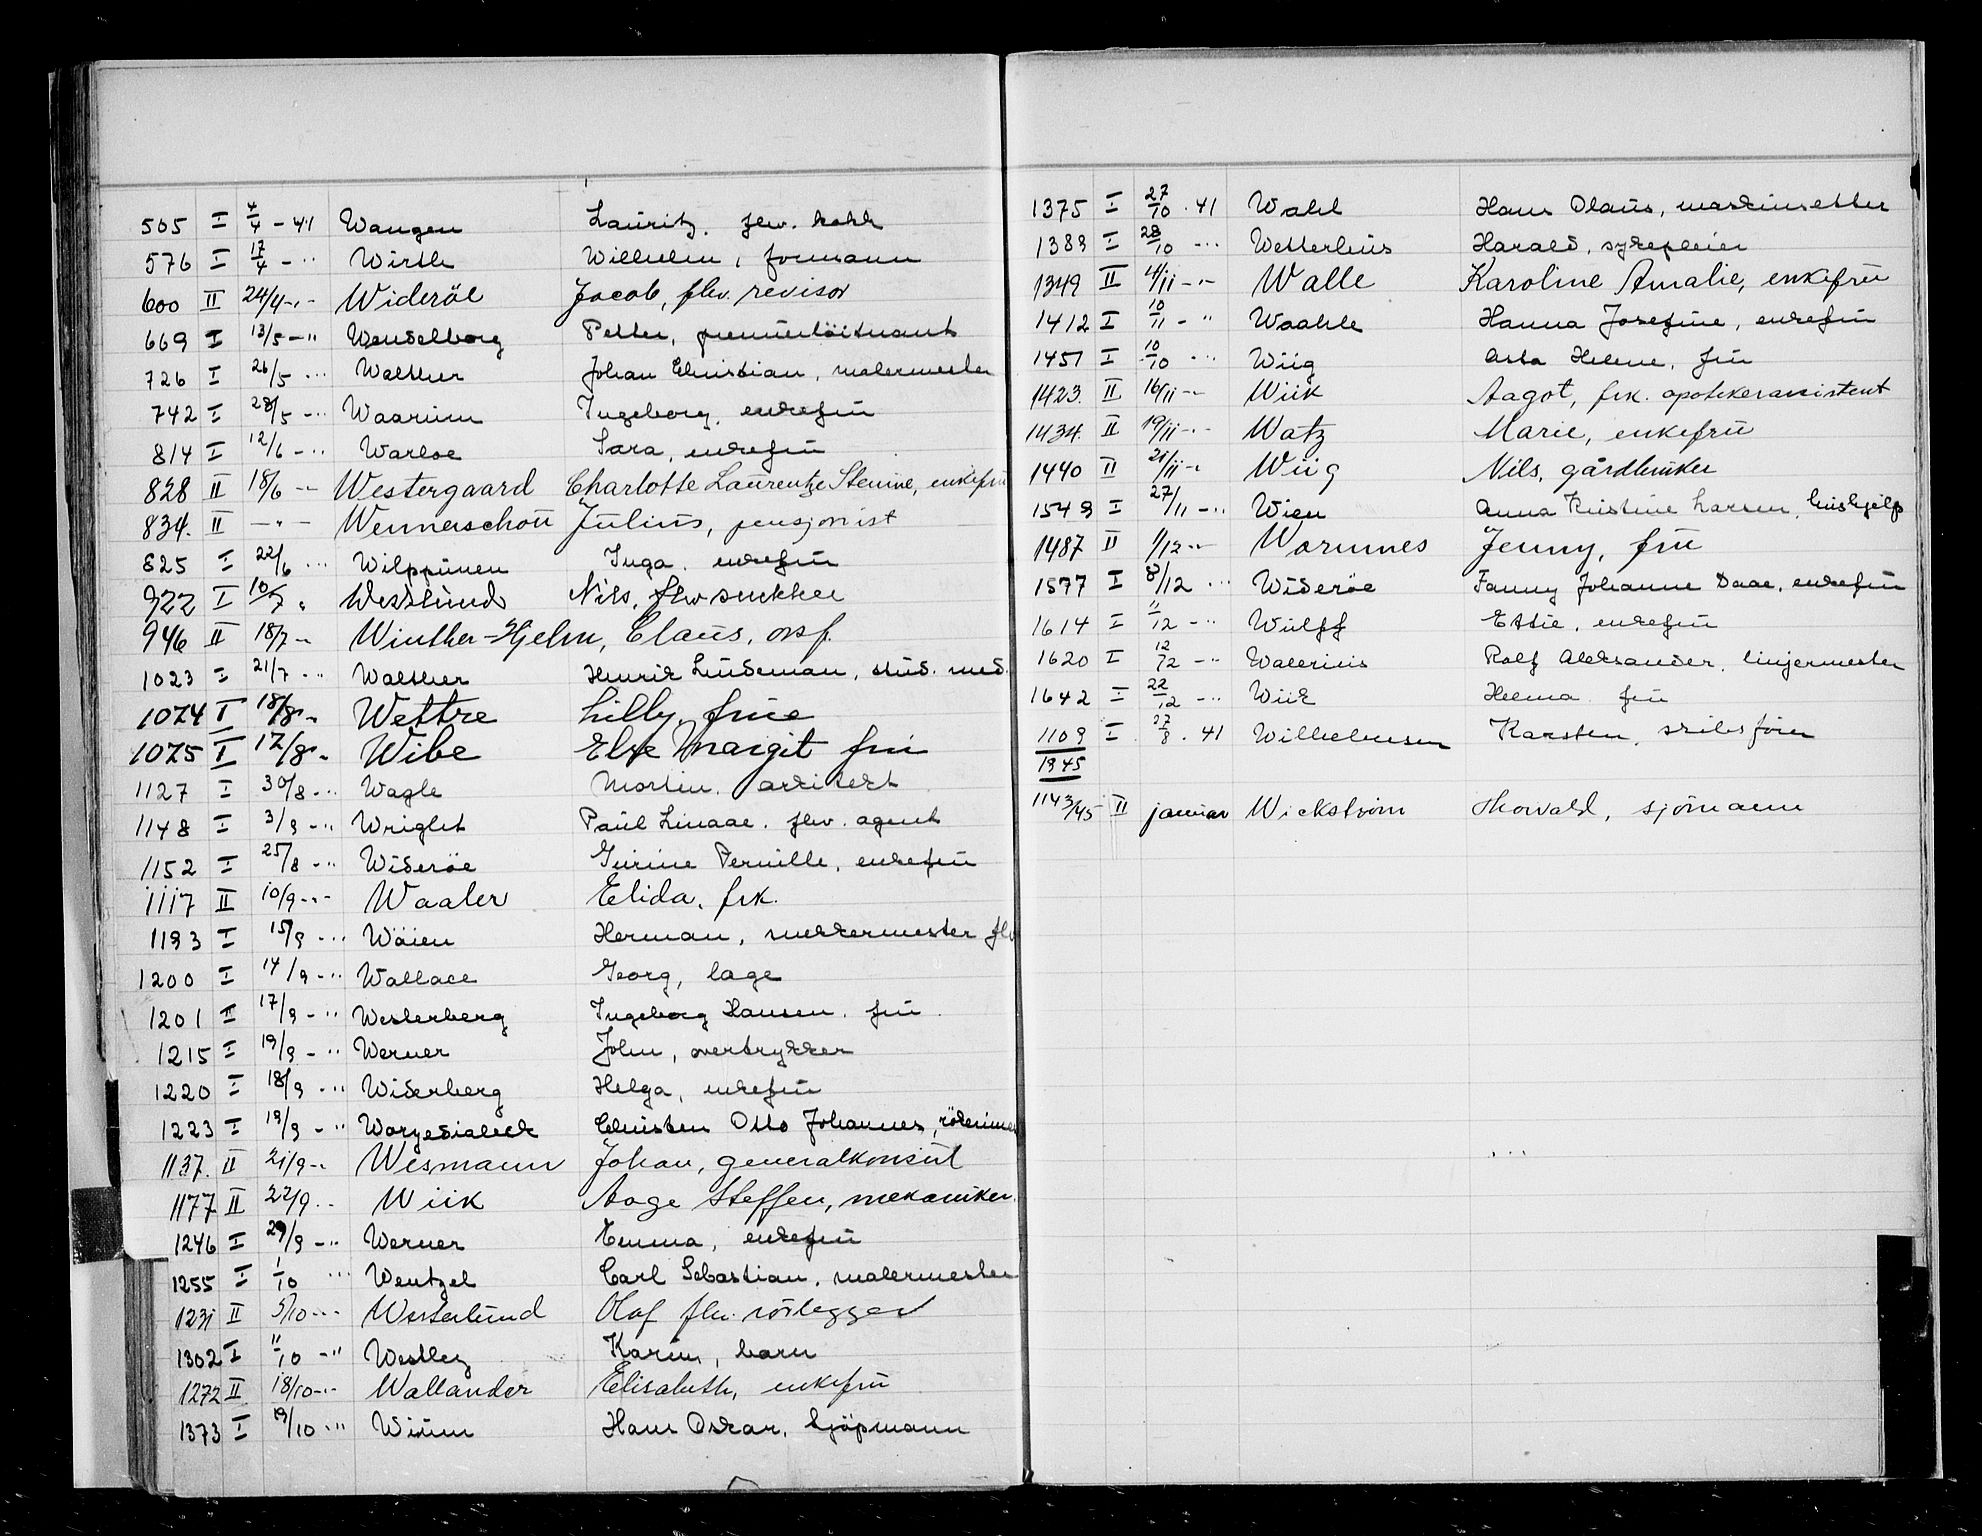 505 I 4/4 - 41 Wangen Lauritz, fhv. kokk
576 I 17/4 - " Wirth Wilhelm, formann
600 II 24/4 - " - Wideröe Jacob, fhv. revisor
669 I 13/5 - " Wendelborg Petter, premierlöitnant
726 I 26/5 - " Walther Johan Christian, malermester
742 I 28/5 - " Waarum Ingeborg, enkefru
814 I 12/6 - " Warloe Sara, enkefru
828 II 18/6 - " Westergaard Charlotte Laurentze Stenine, enkefru
834. II - " - Wennerschou Julius, pensjonist
825 I 22/6 " Wilppunen Inga, enkefru
922 I 10/7 " Westlund Nils, fhv snekker
946 II 18/7 - " Winther-Hjelm, Claus, orsf.
1023 I 21/7 - " Walther Henrik Lindeman, stud. med.
1074 I 18/8 " Wettre Lilly, frue
1075 I 17/8 " Wibe Else Margit fru
1127 I 30/8 - " Wagle Morten, arkitekt
1148 I 3/9 - " Wright Paul Linaae, fhv. agent
1152 I 25/8 - " Wideröe Gurine Pernille, enkefru
1117 II 10/9 - " - Waaler Elida, frk.
1193 I 15/9 - " Wöien Herman, murermester fhv
1200 I 14/9 - " Wallace Georg, lage
1201 II 17/9 - " Westerberg Ingeborg Hansen, fru.
1215 I 19/9 - " Werner John, overtrykker
1220 I 18/9 - " Widerberg Helga, enkefru
1223 I 19/9 - " Christen Otto Johannes,
1137. II 21/9 - " Wesmann Johan, generalkonsul
1177 II 22/9 - " Wiik Aage Steffen, mekaniker.
1246 I 29/9 - " Werner Emma, enkefru
1255 I 1/10 " Wentzel Carl Sebastian, malermester
1231 II 5/10 - " - Westerlund Olaf fhv. rörlegger
1302 I 11/10 - " Westley Karin, barn
1272 II 18/10 - " - Wallander Elisabeth, enkefru
1373 I 19/10 " Wium Hans Oskar, kjöpmann
1375 I 27/10 - 41 Wahl Hans Olaus, maskinsetter
1389 I 28/10 - " Wetterhus Harald, sykepleier
1349 II 4/11 - " - Walle Karoline Amalie, enkefru
1412 I 10/11 - " Waahle Hanna Josefine, enkefru
1451 I 10/10 " Wiig Asta Helene, fru
1423. II 16/11 - " Wiik Aagot, frk. apotekerassistent
1434. II 19/11 - " - Watz Marie, enkefru
1440 II 21/11 - " Wiig Nils, gårdbruker
1549 I 27/11 - " Wien Anna Kristine Larsen, hushjelp
1487 II 1/12 - " Warmnes Jenny, fru
1577 I 8/12 " Widerøe Fanny Johanne Daae, enkefru
1614 I 11/12 - " Wulff Ettie, enkefru
1620 I 12/12 - " Walerius Rolf Aleksander, linjermester
1642 I 22/12 - " Wiik Helma fru
1109 I 27/8 - 41 Wilhelmsen Karsten, skibsförer
1945
1143/45 II januar Wickström Thorvald, sjömann